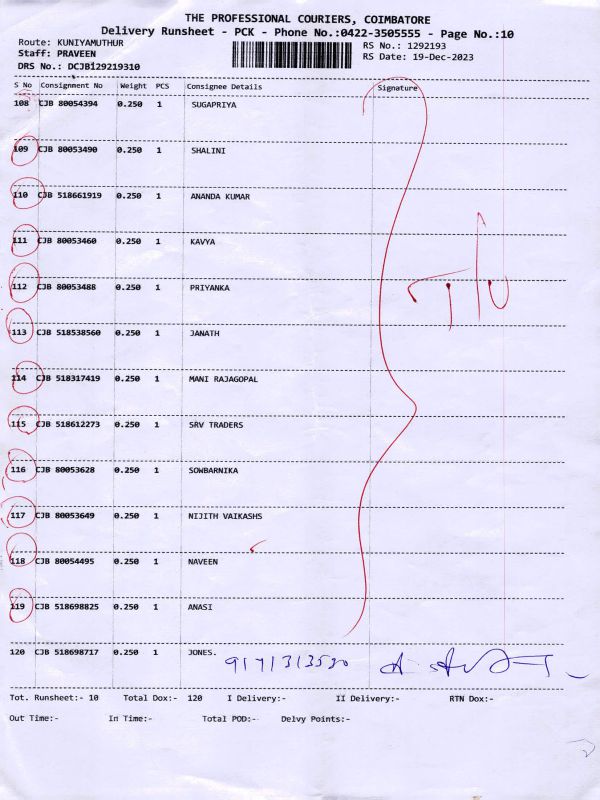 THE PROFESSIONAL COURIERS, COIMBATORE
Delivery Runsheet - PCK - Phone No.:0422-3505555 - Page No.:10
Route: KUNIYAMUTHUR
RS No.: 1292193
Staff: PRAVEEN
RS Date: 19-Dec-2023
DRS No.: DCJB129219310
S No Consignment No Weight PCS Consignee Details Signature
108 CJB 80054394 0.250 1 SUGAPRIYA
109 CJB 80053490 0.250 1 SHALINI
110 CJB 518661919 0.250 1 ANANDA KUMAR
111 CJB 80053460 0.250 1 KAVYA
112 CJB 80053488 0.250 1 PRIYANKA
113 CJB 518538560 0.250 1 JANATH
114 CJB 518317419 0.250 1 MANI RAJAGOPAL
115 CJB 518612273 0.250 1 SRV TRADERS
116 CJB 80053628 0.250 1 SOWBARNIKA
117 CJB 80053649 0.250 1 NIJITH VAIKASHS
118 CJB 80054495 0.250 1 NAVEEN
119 CJB 518698825 0.250 1 ANASI
120 CJB 518698717 0.250 1 JONES.
9171313530
Tot. Runsheet:- 10 Total Dox:- 120 I Delivery:- II Delivery:- RTN Dox:-
Out Time:- In Time:- Total POD:- Delvy Points:-